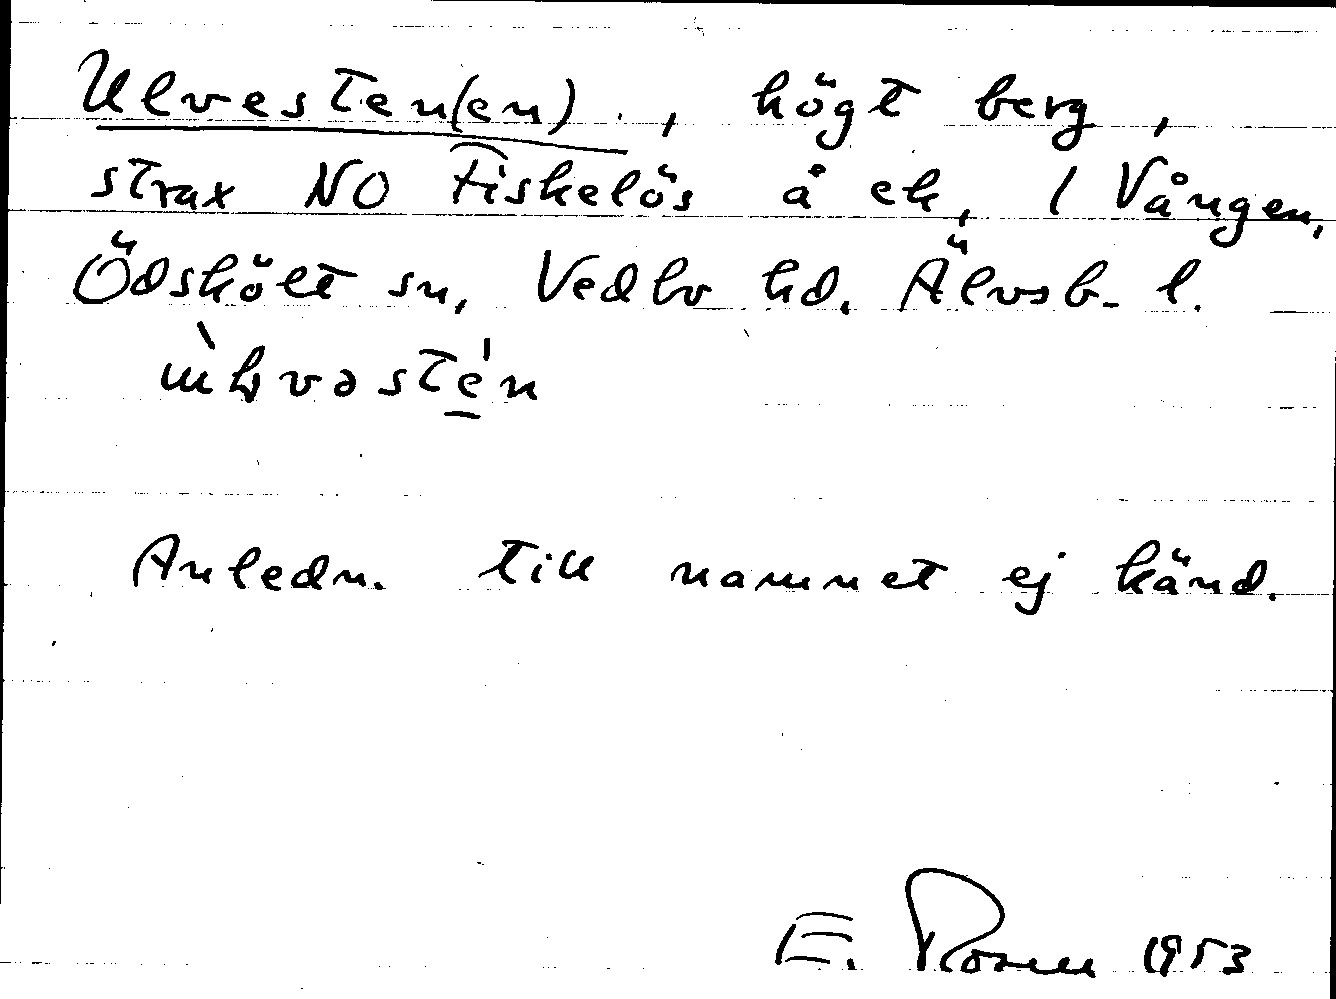 Ulvesten(en)., högt berg,
strax NO Fiskelös å ek, 1 Vången,
Ödskölt sn, Vedbo hd. Älvsb. l.
Anledn. till namnet ej känd.
E. Rosell 1953